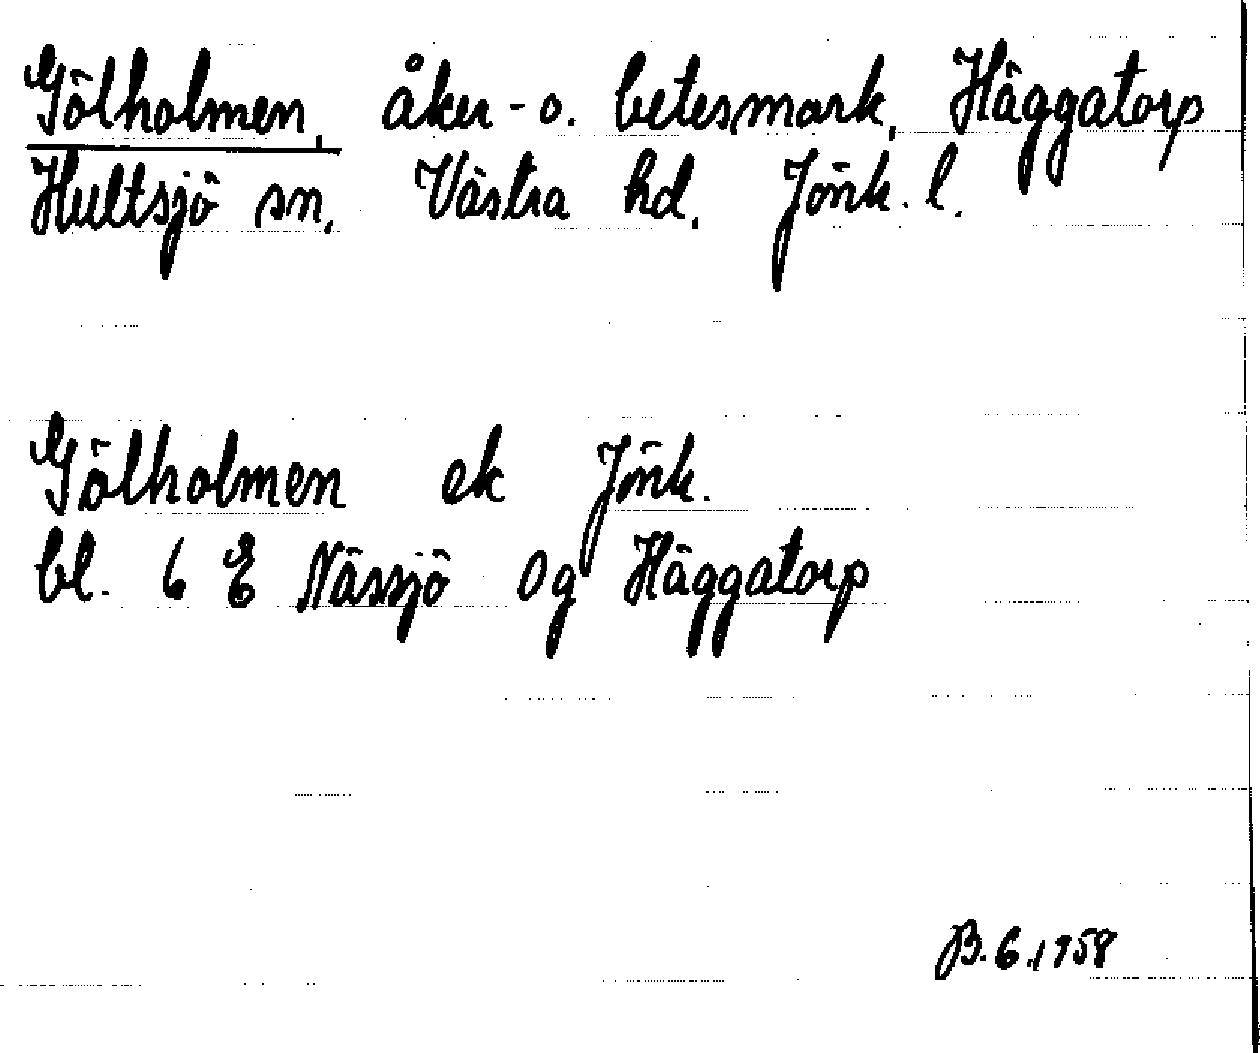 Gölholmen, åker- o. betesmark, Häggatorp
Hultsjö sn, Västra hd, Jönk. l.
Gölholmen ek Jönk.
bl. 6 E Nässjö Og Häggatorp
B.G.1958